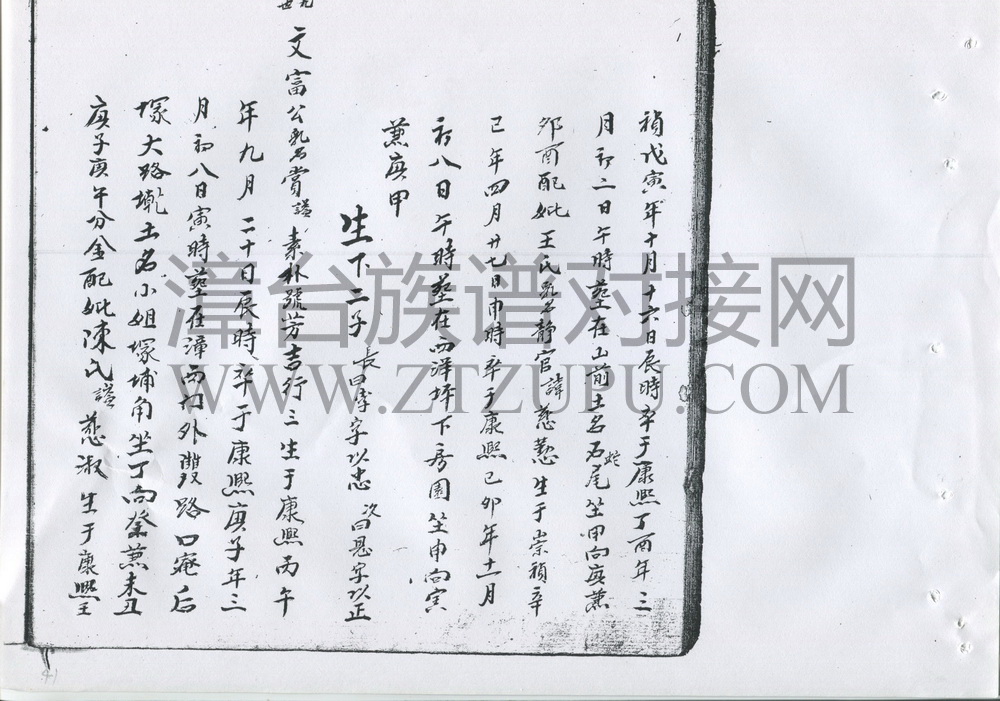 禎戊寅年十月十六日辰時卒于康熙丁酉年三
月初二日午時塟在山前土名石蛇尾坐甲向庚蒹
夘酉配妣王氏乳名靜官諱慈懃生于崇禎辛
巳年四月廿七日申時卒于康熙己卯年十一月
初八日午時塟在西洋坪下房園坐申向寅
蒹庚甲
生下二子 長曰孝字以忠 次曰恩字以正
文富公乳名賞諡素朴號芳吉行三生于康熙丙午
年九月二十日辰時卒于康熙庚子年三
月初八日寅時塟在漳西門外叚路口庵后
塚大路墘土名小姐塚埔角坐丁向癸蒹未丑
庚子庚午分金配妣陳氏諡慈淑生于康熙壬
漳台族谱对接网
WWW.ZTZUPU.COM